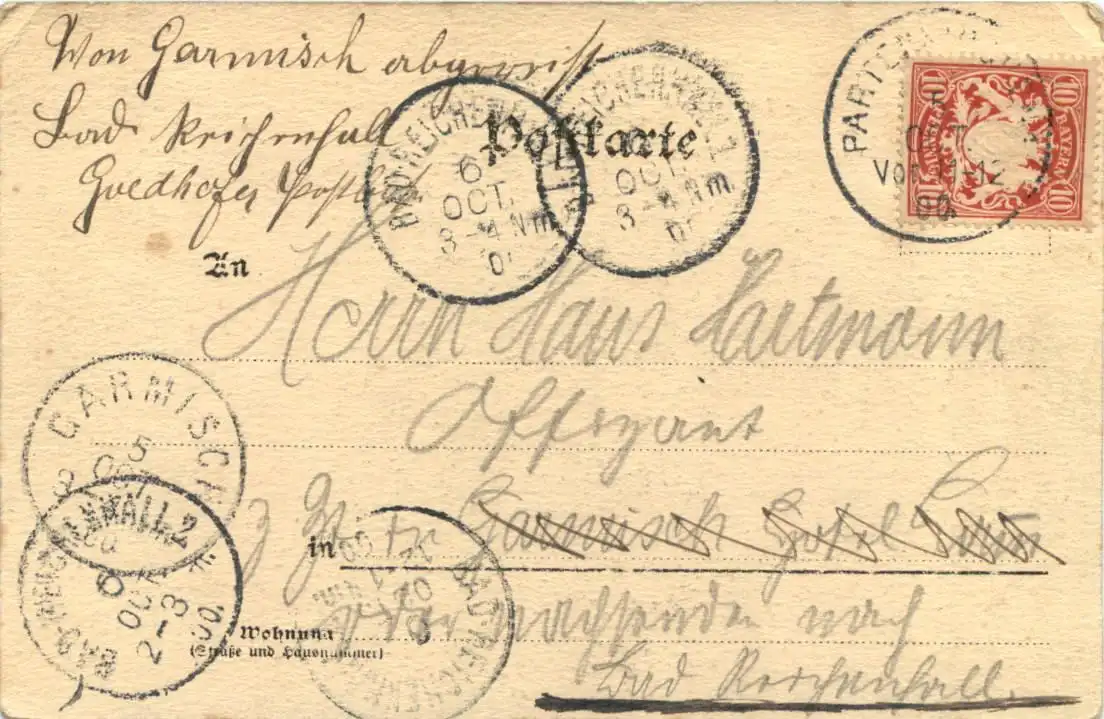 Von Garmisch abgereist
Bad Reichenhall
Postkarte
An
Herrn Hans Hartmann
z. Zt.
in
Garmisch Hotel
oder nachsenden nach
Wohnung
(Straße und Hausnummer)
Bad Reichenhall.
BAD REICHENHALL
6
OCT.
3-4 Nm
BAD REICHENHALL 2
OCT.
3-4 Nm
PARTENKIRCHEN
OCT.
Vor. 11-12
00.
10 BAYERN 10
10 PFENNIG 10
GARMISCH
5
OCT
BAD-REICHENHALL 2
6
OCT
2-3
00.
BAD-REICHENHALL
6
OCT
00